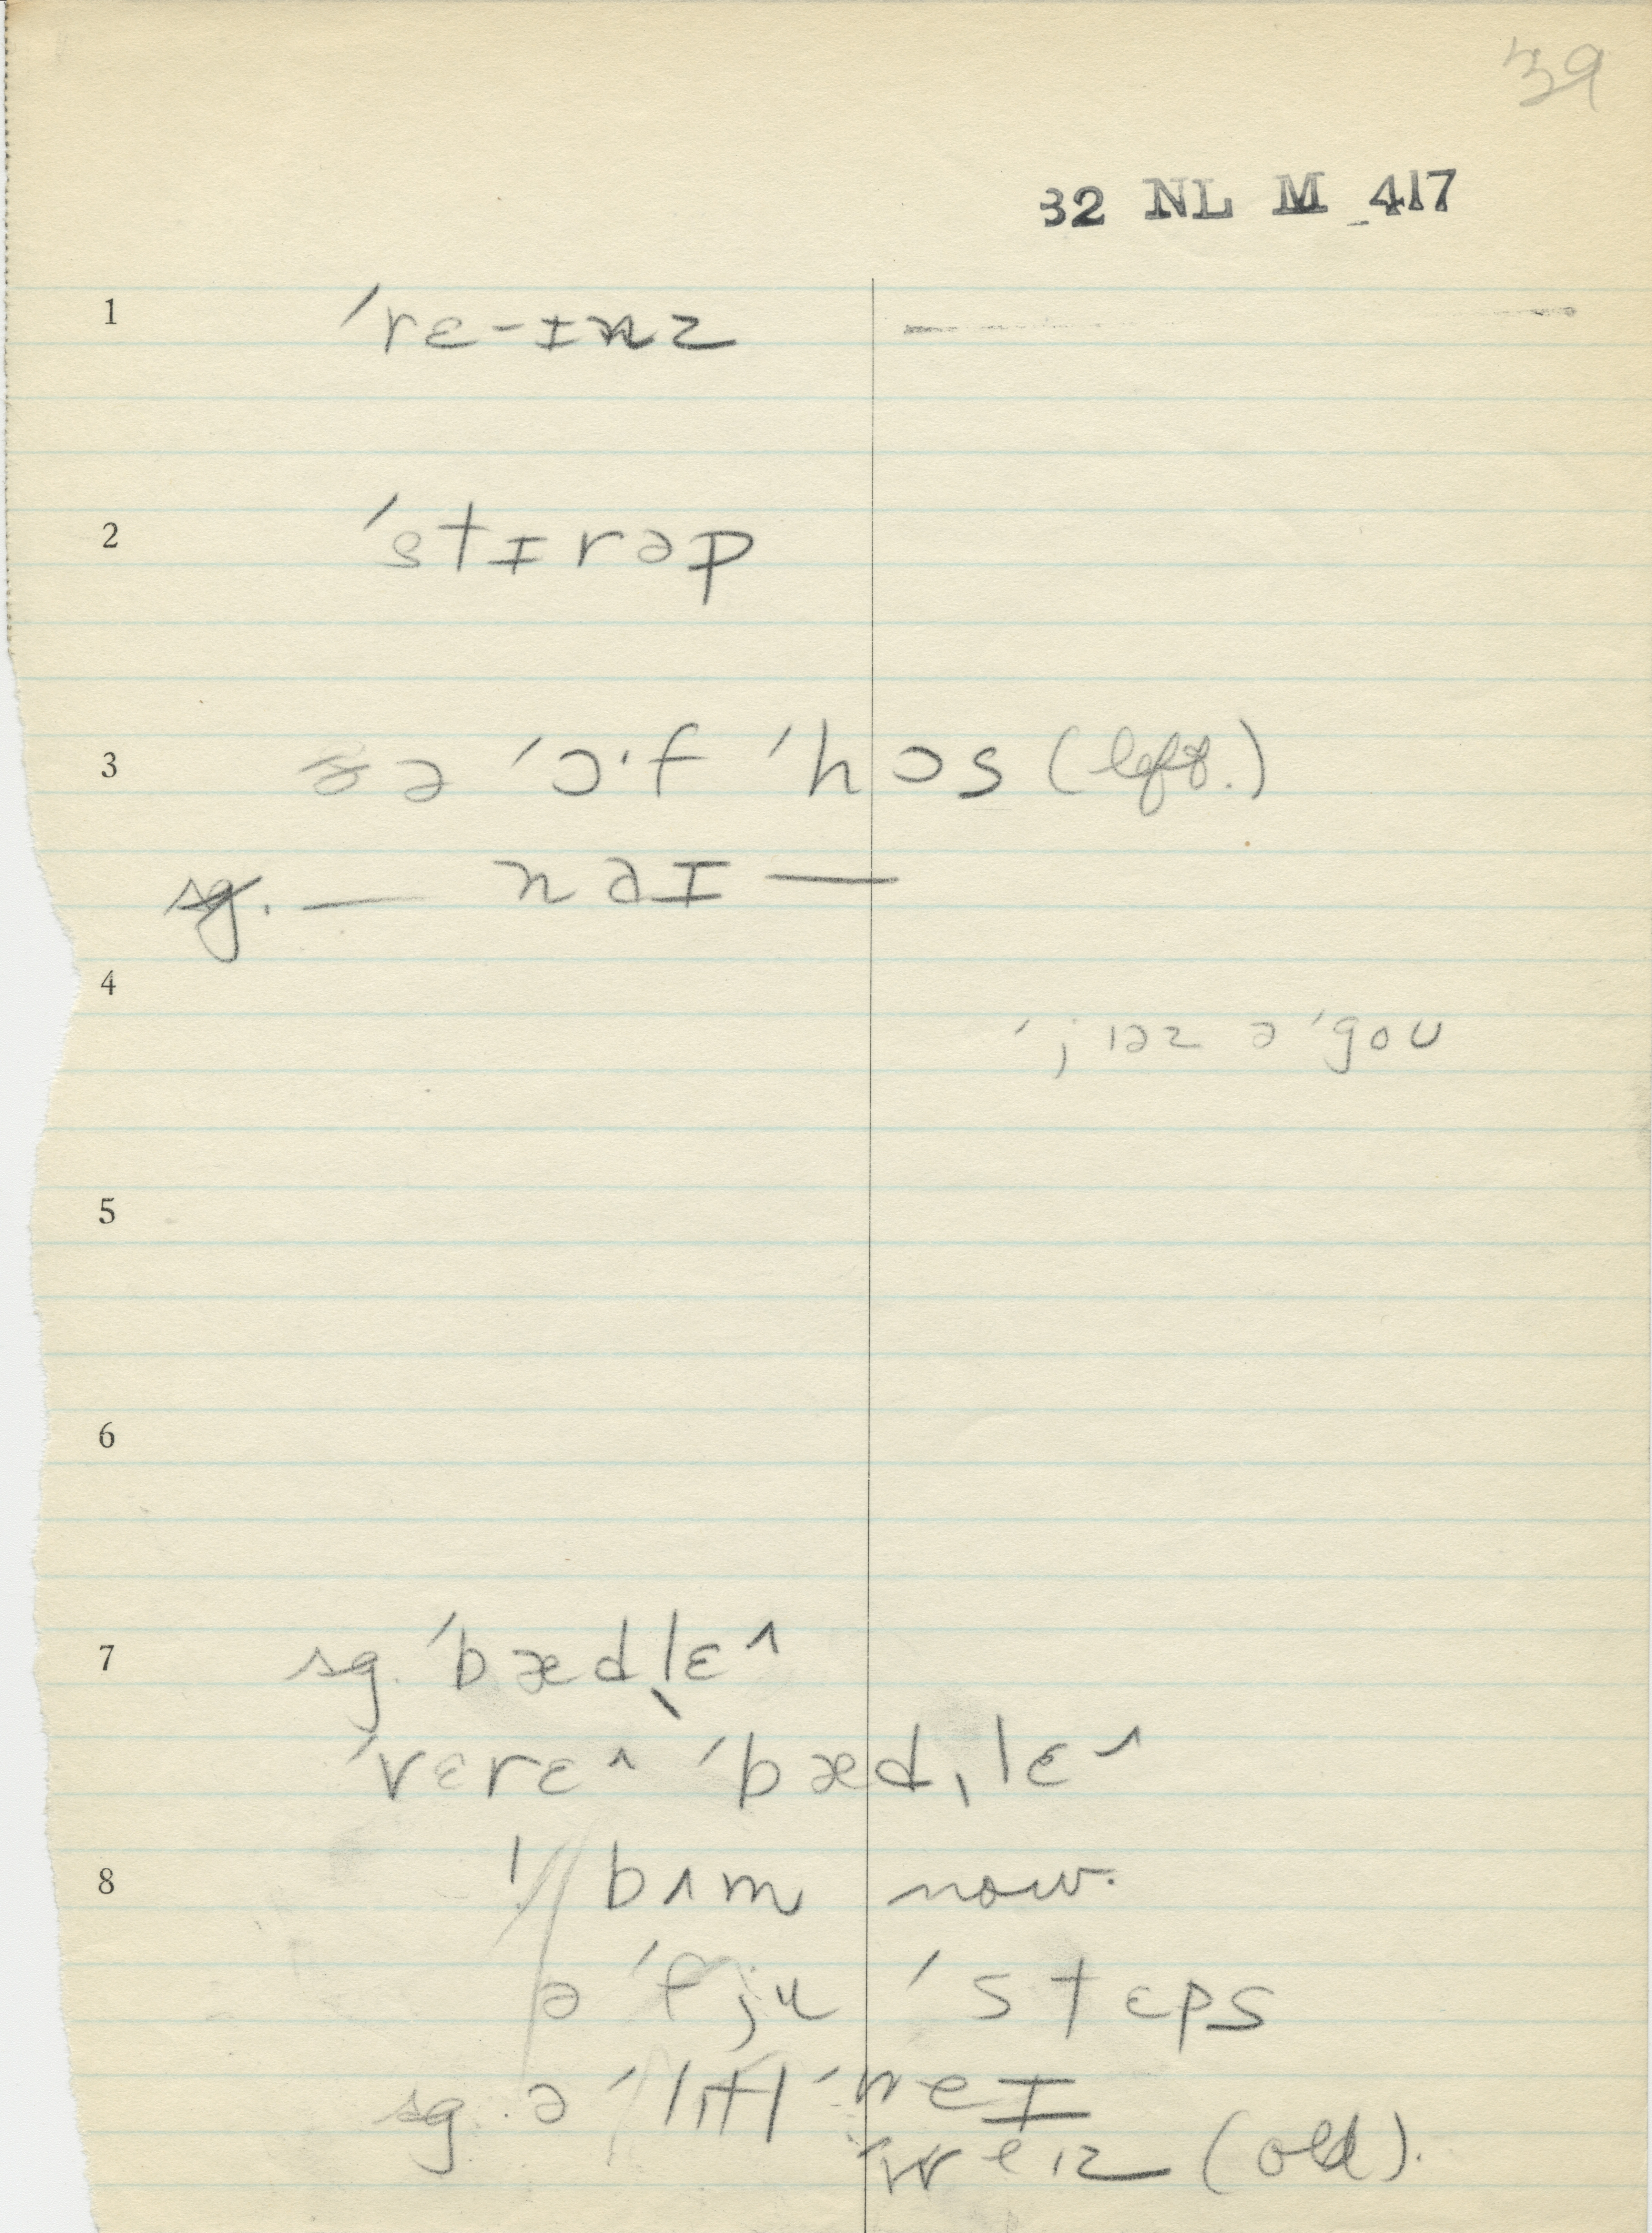 39
32 NL M 417
1 ˈrɛ-ɪnz
2 ˈstɪrəp
3 ðə ˈɔˑf ˈhɔs (left.)
sg. — nəɪ —
4
ˈjɪəz əˈgoʊ
5
6
7 sg. ˈbædˌlɛ^
ˈvɛrɛ^ ˈbædˌlɛ^
8 ! bʌm now.
ə ˈfju ˈstɛps
sg. ə ˈlɪtl ˈweɪ
ˈweɪz (old).